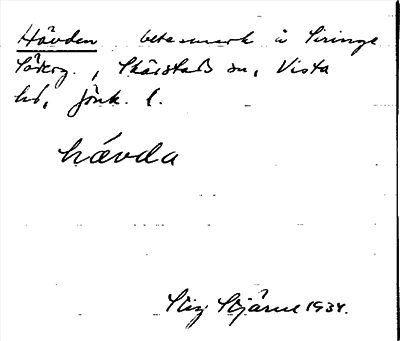 Hävden betesmark å Siringe
Söderg., Skärstads sn, Vista
hd, Jönk. l.
hávda
Stig Stjärne 1934.